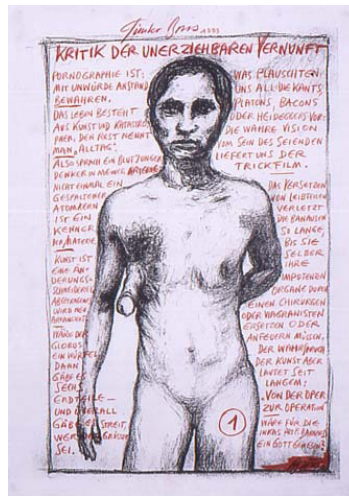 1993
KRITIK DER UNERZIEHBAREN VERNUNFT
PORNOGRAPHIE IST:
MIT UNWÜRDE ANSTAND
BEWAHREN.
DAS LEBEN BESTEHT
AUS KUNST UND
DEN REST NENNT
MAN „ALLTAG".
ALSO SPRACH EIN BLUTJUNGER
DENKER IN MEINER
NICHT EINMAL EIN
GESPALTENER
ATOMKERN
IST EIN
KENNER
KUNST IST
EINE
WÄRE DER
GLOBUS
EIN WÜRFEL
DANN
GÄBE ES
SECHS
ERDTEILE —
UND ÜBERALL
GÄBE ES STREIT,
WER DER GRÖSSTE
SEI.
WAS PLAUSCHTEN
UNS ALL DIE KANTS,
PLATONS, BACONS
ODER HEIDEGGERS VOR:
DIE WAHRE VISION
VOM SEIN DES SEIENDEN
LIEFERT UNS DER
TRICKFILM.
DAS VERSETZEN
VON
VERLETZT
DIE BANAUSEN
SO LANGE,
BIS SIE
SELBER
IHRE
IMPOTENTEN
ORGANE DURCH
EINEN CHIRURGEN
ODER
ERSETZEN ODER
ANFEUERN MÜSSEN.
DER WAHRSPRUCH
DER KUNST ABER
LAUTET SEIT
LANGEM:
„VON DER OPER
ZUR OPERATION"
WÄRE FÜR DIE
INKAS
EIN GOTT GEWESEN?
1